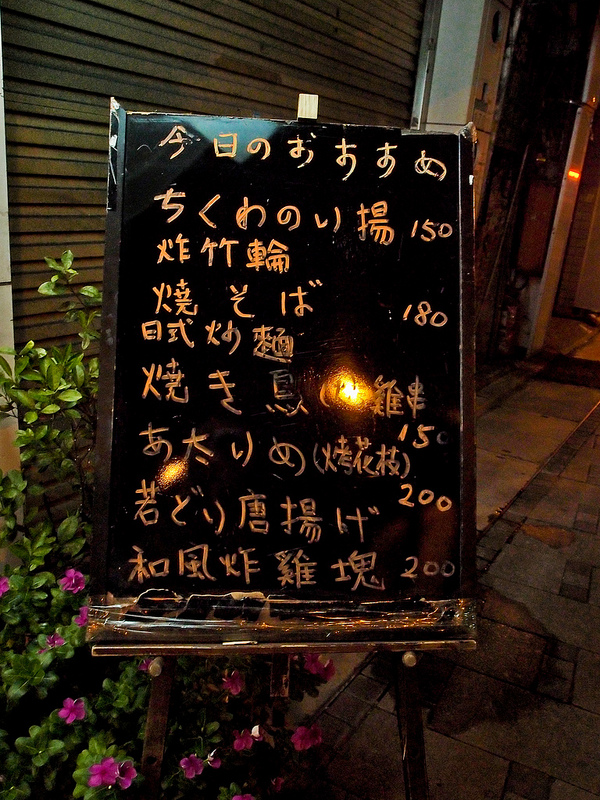 今日のおすすめ
ちくわのり揚 150
炸竹輪
焼そば 180
日式炒麵
焼き鳥 雞串
150
あ太りめ(烤花枝)
200
若どり唐揚げ
和風炸雞塊 200